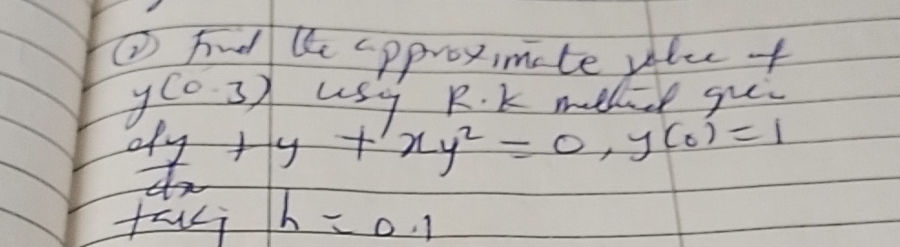 ② Find the approximate value of
y(0.3) using R.K method given
dy/dx + y + xy² = 0, y(0) = 1
taking h = 0.1